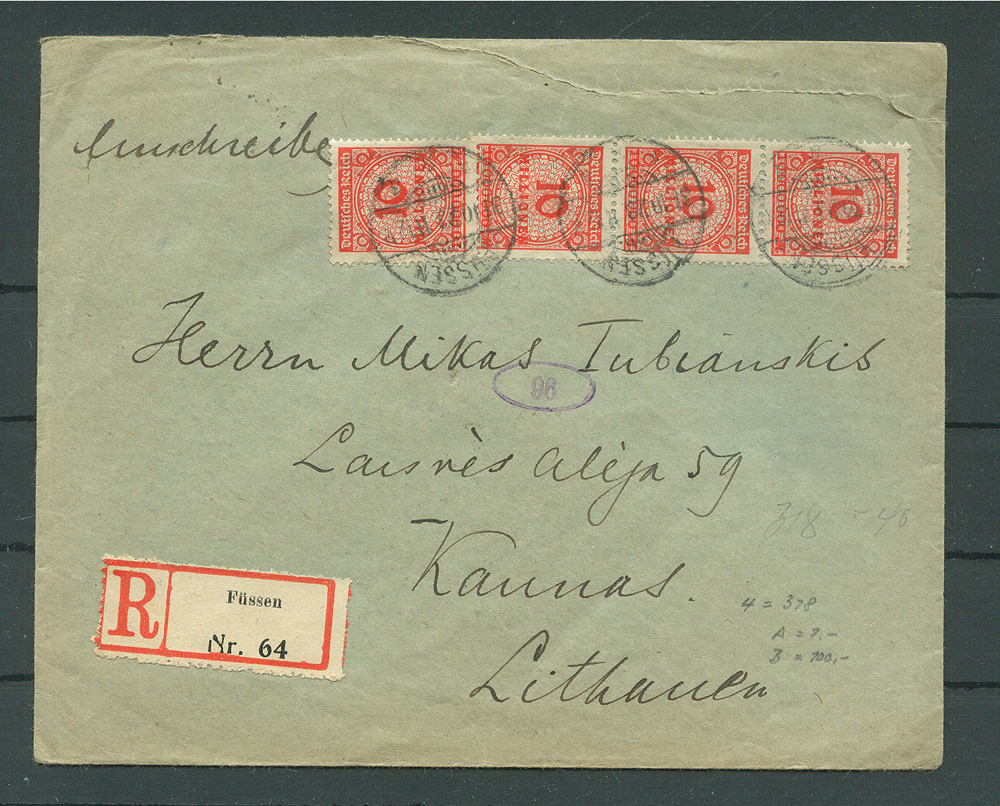 Einschreiben
Deutsches Reich 10 MILLIONEN
10 MILLIONEN Deutsches Reich
10 MILLIONEN Deutsches Reich
10 MILLIONEN Deutsches Reich
FÜSSEN
FÜSSEN
FÜSSEN
Herrn Mikas Tubianskis
96
Laisvès alėja 59
318 - 40
Kaunas.
R Füssen
Nr. 64
4 = 378
B = 100,-
Lithauen